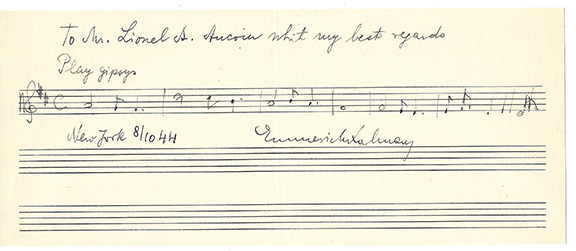 To Mr. Lionel A. Aucoin whit my best regards
Play gipsys
New York 8/10 44 Emmerich Kalman